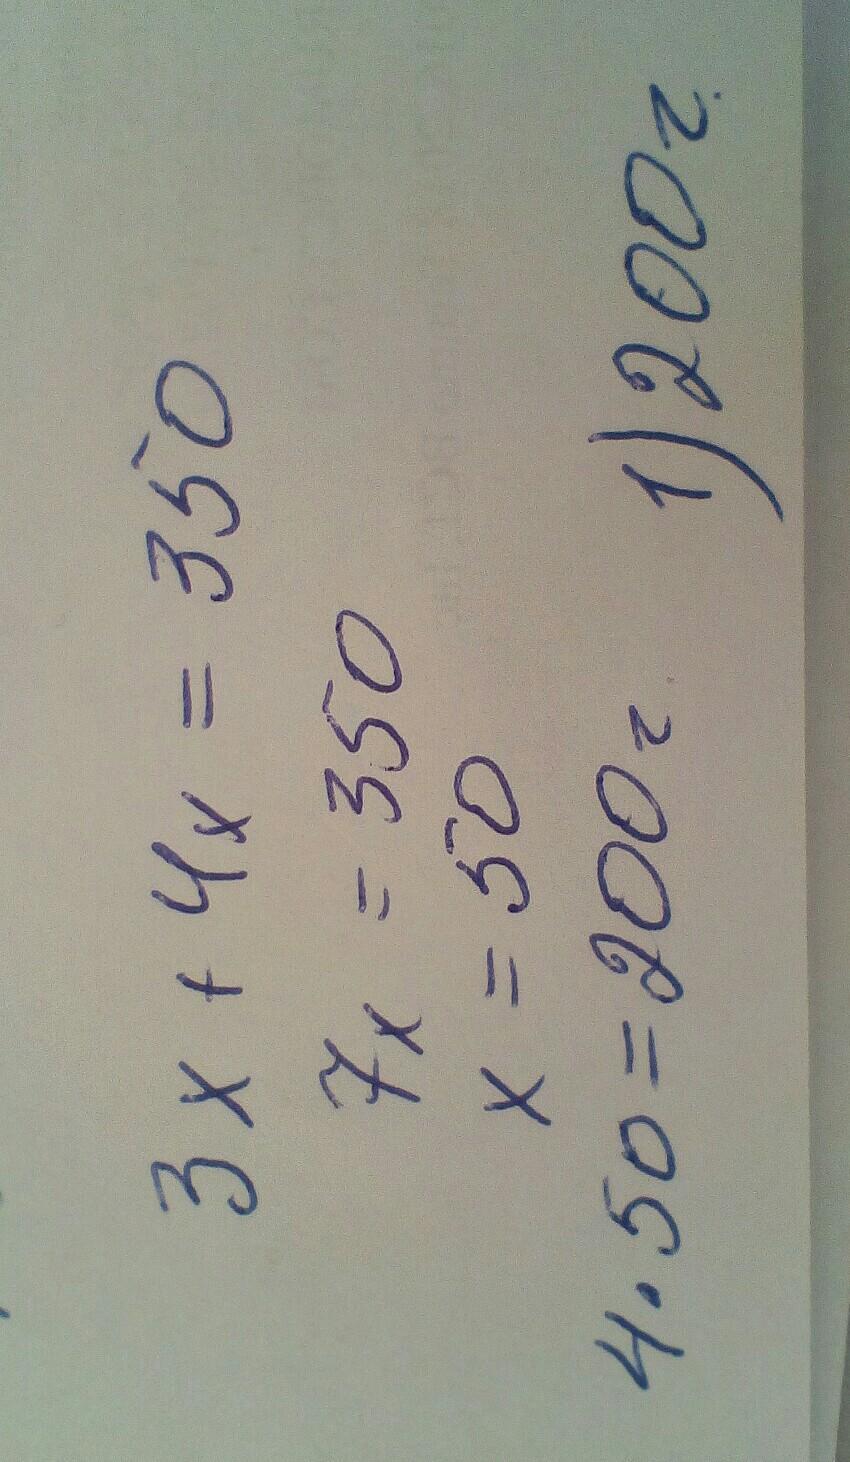 3x + 4x = 350
7x = 350
x = 50
4 · 50 = 200г 1) 200г.